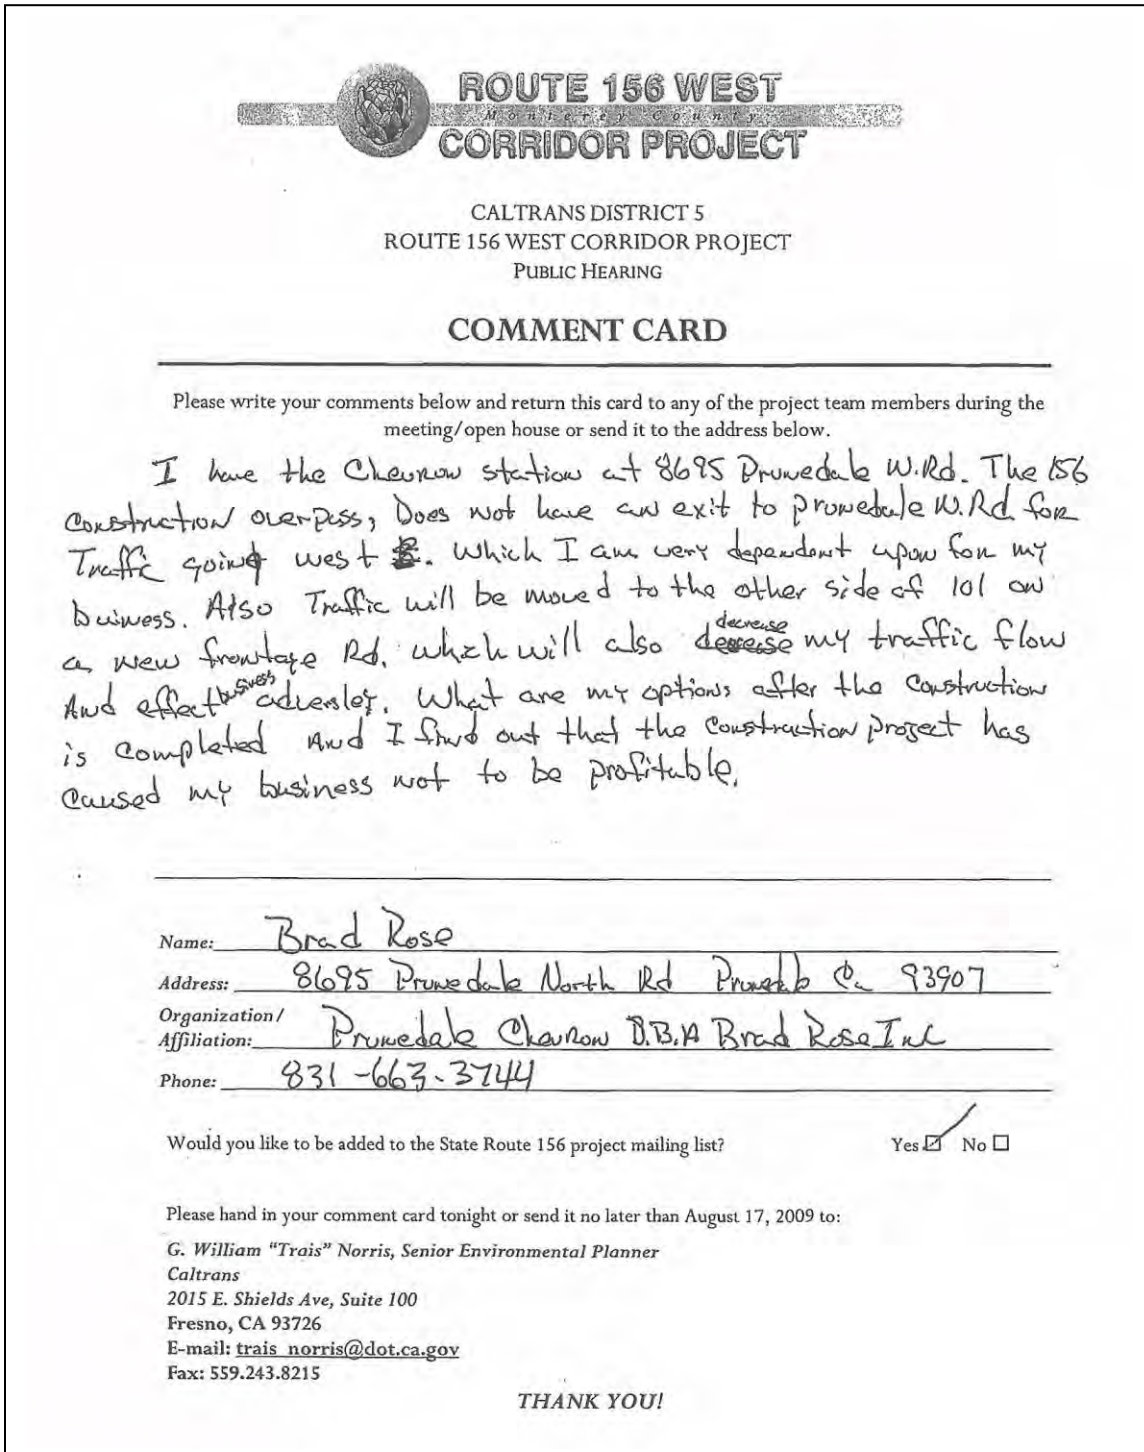 ROUTE 156 WEST
Monterey County
CORRIDOR PROJECT
CALTRANS DISTRICT 5
ROUTE 156 WEST CORRIDOR PROJECT
PUBLIC HEARING
COMMENT CARD
Please write your comments below and return this card to any of the project team members during the
meeting/open house or send it to the address below.
I have the Chevron station at 8695 Prunedale W.Rd. The 156
Construction overpass, Does not have an exit to prunedale W.Rd for
Traffic going west. Which I am very dependant upon for my
buiness. Also Traffic will be moved to the other side of 101 on
a new frontage Rd. which will also decrease my traffic flow
And effect business adversley. What are my options after the Construction
is completed And I find out that the Construction project has
Caused my business not to be profitable.
Name: Brad Rose
Address: 8695 Prunedale North Rd Prunedale Ca 93907
Organization/
Affiliation: Prunedale Chevron D.B.A Brad Rose Inc
Phone: 831-663-3744
Would you like to be added to the State Route 156 project mailing list? Yes ☑ No ☐
Please hand in your comment card tonight or send it no later than August 17, 2009 to:
G. William "Trais" Norris, Senior Environmental Planner
Caltrans
2015 E. Shields Ave, Suite 100
Fresno, CA 93726
E-mail: trais_norris@dot.ca.gov
Fax: 559.243.8215
THANK YOU!